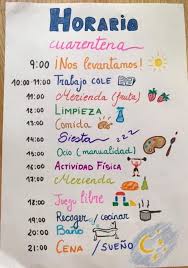 HORARIO
cuarentena
9:00 ¡Nos levantamos!
10:00-11:00 Trabajo COLE
11:00 Merienda (fruta)
12:00 LIMPIEZA
13:00 COMIDA
14:00 Siesta zzz
15:00 Ocio (manualidad)
16:00 ACTIVIDAD FÍSICA
17:00 Merienda
18:00 Juego libre
19:00 Recoger / cocinar
20:00 BAÑO
21:00 CENA / SUEÑO